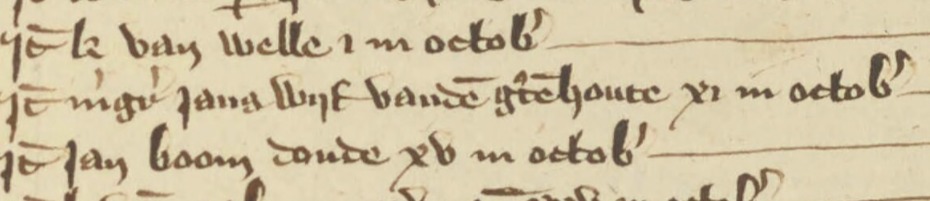 Jt̄ k van welle i in octob'
Jt̄ m'gr' Jans wijf vandē gtēhoute xi in octob'
Jt̄ Jan boom doude xv in octob'
in octob'